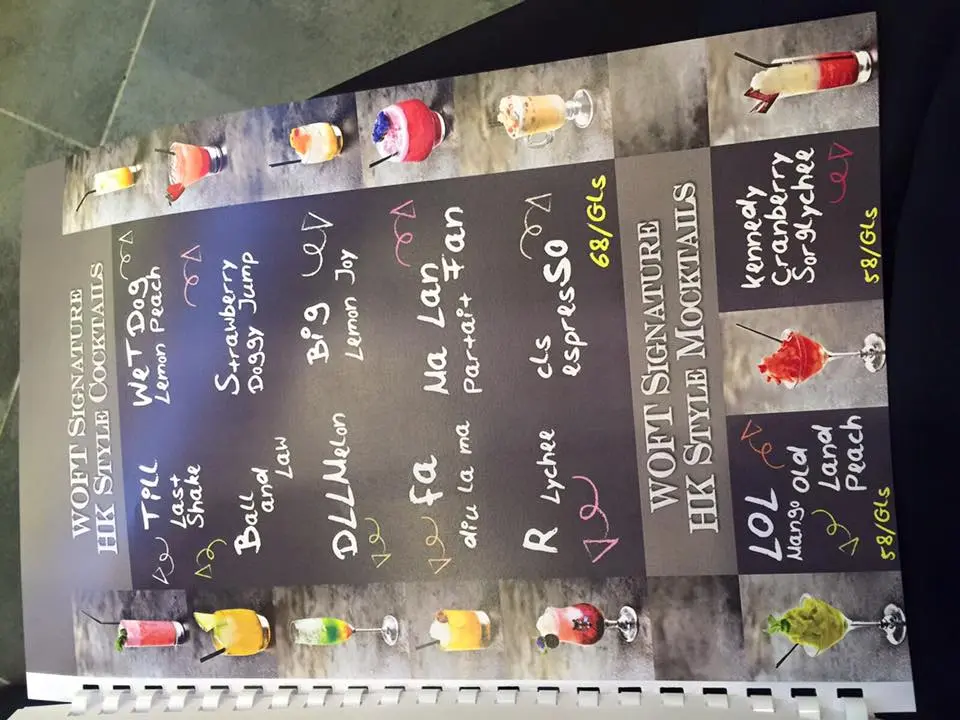 WOFT SIGNATURE
HK STYLE COCKTAILS
Till
Last
Shake
Wet Dog
Lemon Peach
Ball
and
Law
Strawberry
Doggy Jump
DLLMelon
Big
Lemon Joy
fa
diu la ma
Ma Lan
Partait Fan
R Lychee
cls
espresso
68/GLs
WOFT SIGNATURE
HK STYLE MOCKTAILS
LOL
Mango Old
Land
Peach
58/GLs
Kennedy
Cranberry
Sorglychee
58/GLs